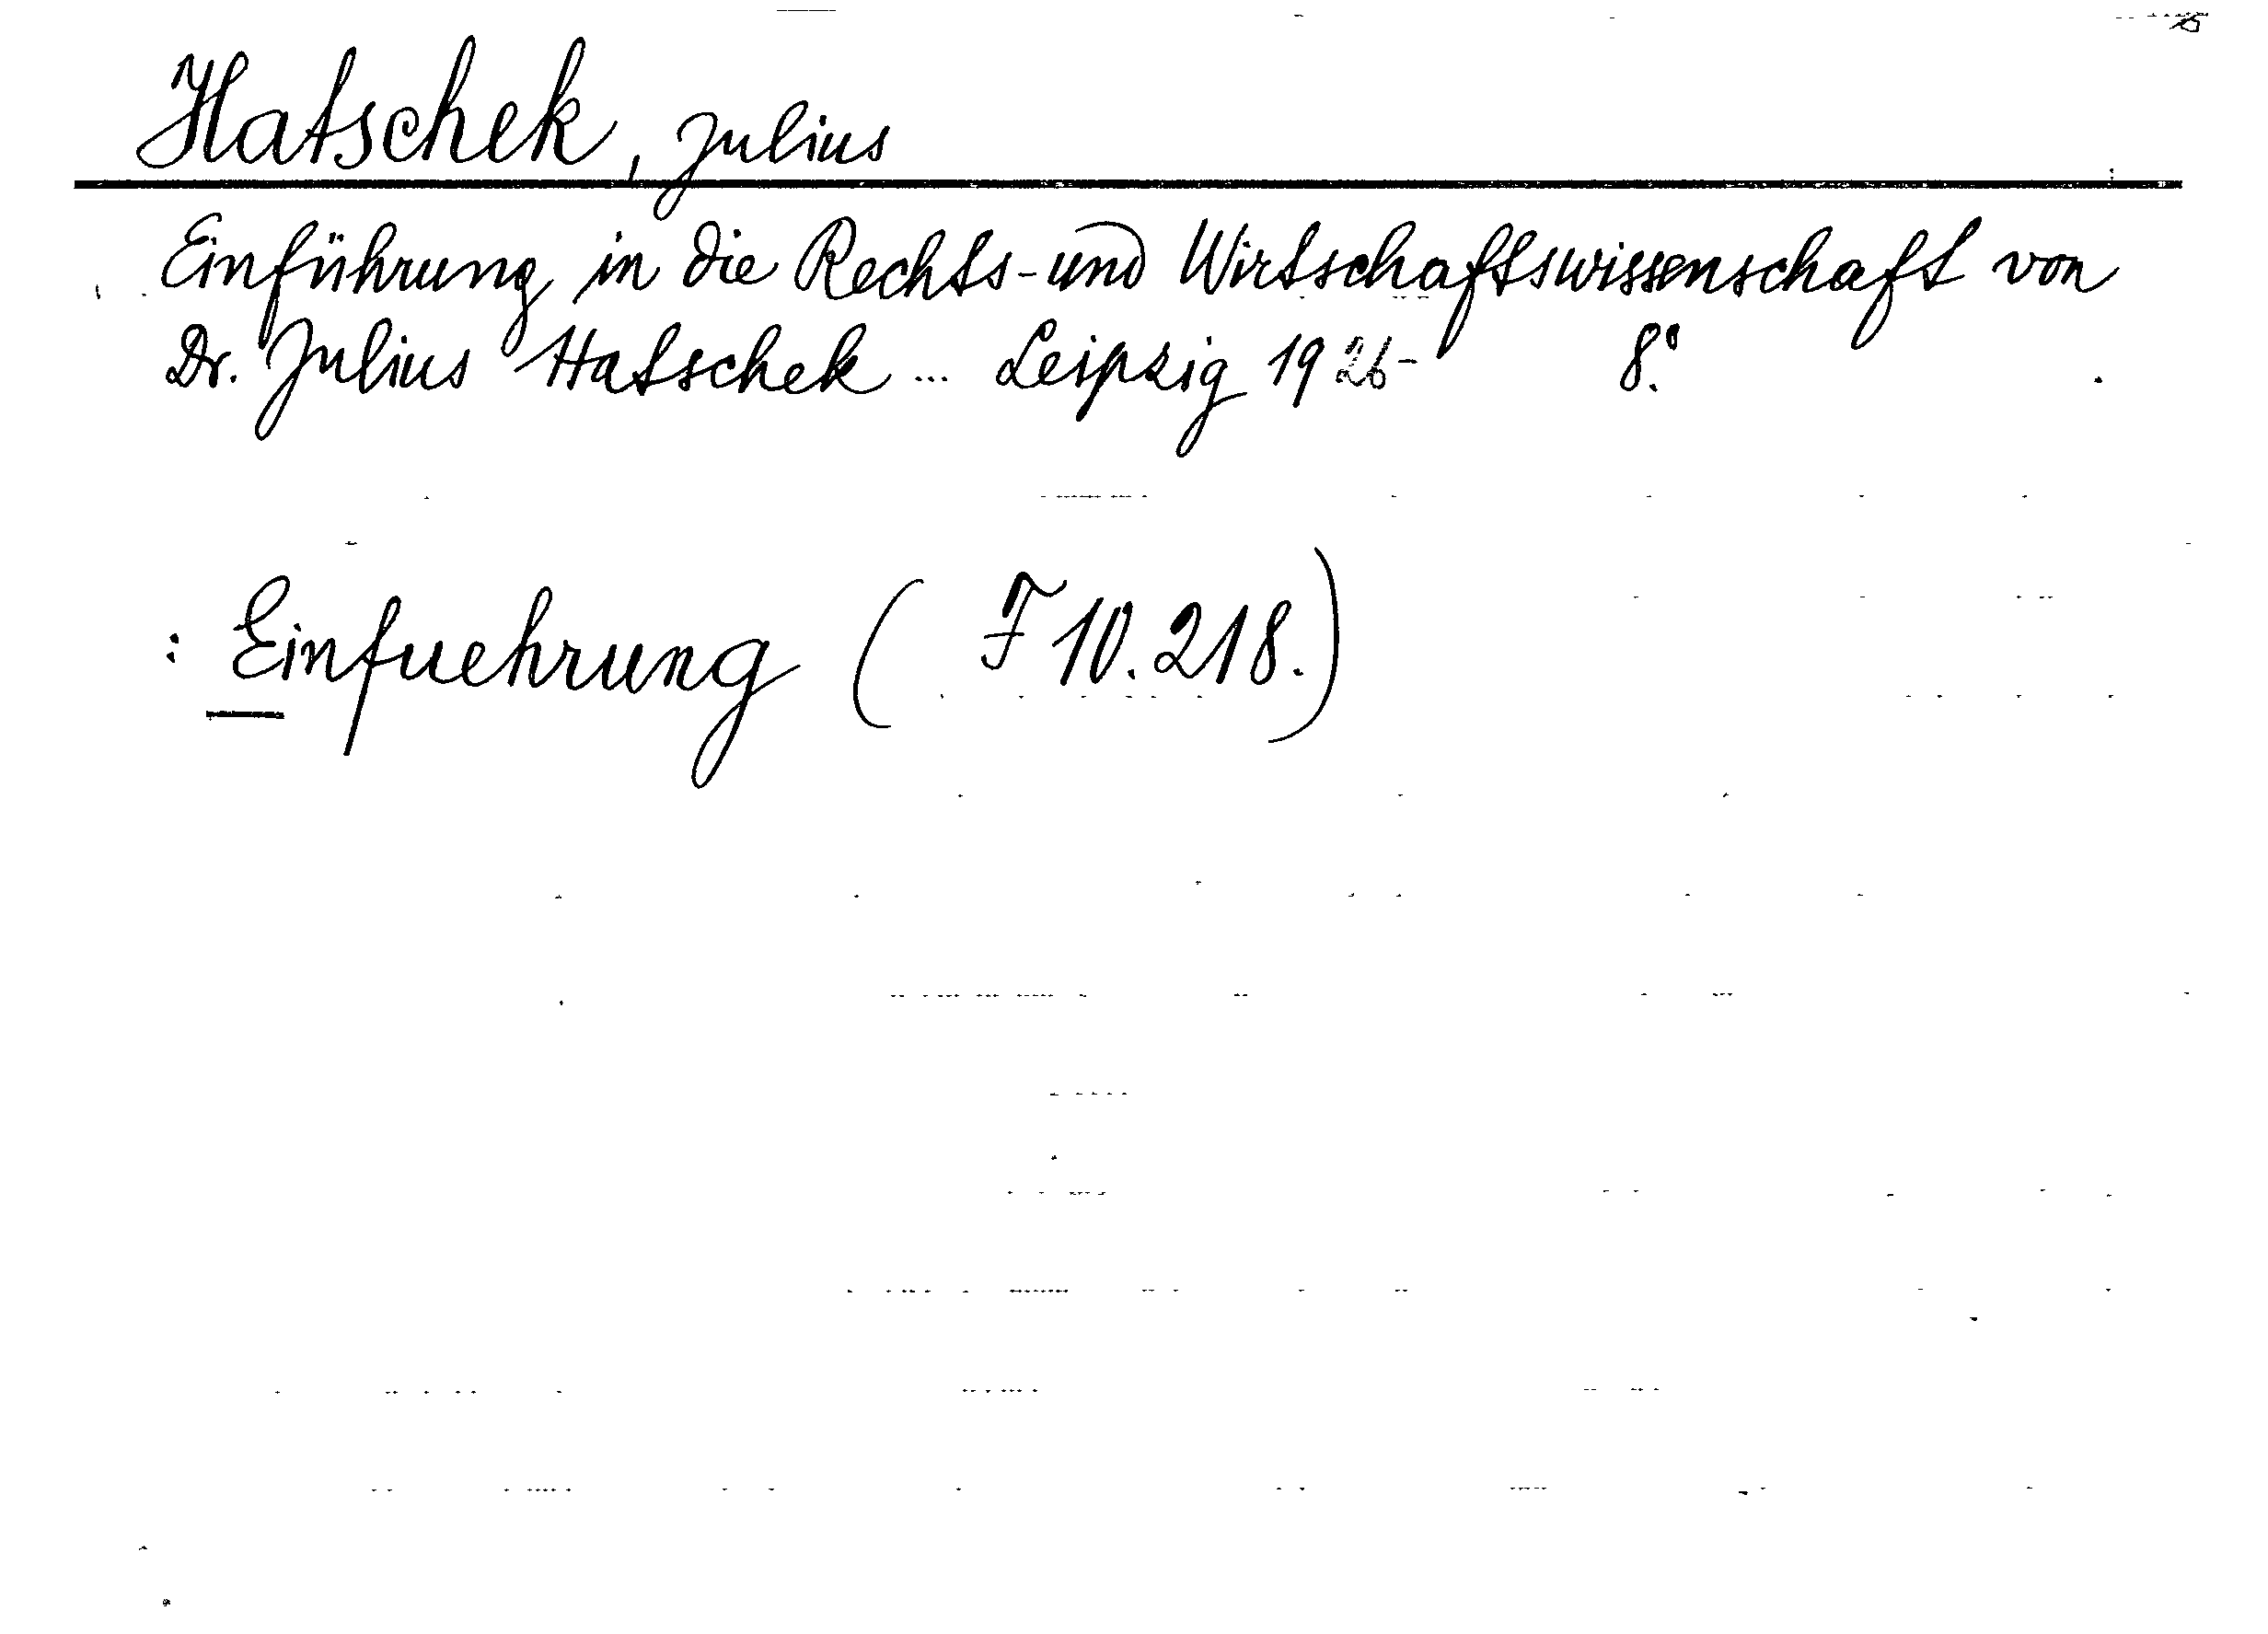 Hatschek, Julius
Einführung in die Rechts- und Wirtschaftswissenschaft von
Dr. Julius Hatschek ... Leipzig 1926- 8.°
: Einfuehrung ( F 10.218.)